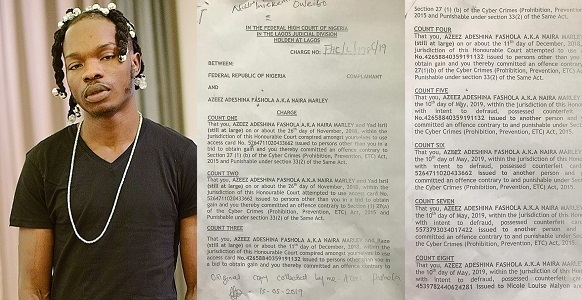 IN THE FEDERAL HIGH COURT OF NIGERIA
IN THE LAGOS JUDICIAL DIVISION
HOLDEN AT LAGOS
CHARGE NO:
BETWEEN:
FEDERAL REPUBLIC OF NIGERIA COMPLAINANT
AND
AZEEZ ADESHINA FASHOLA A.K.A NAIRA MARLEY
CHARGE
COUNT ONE
That you, AZEEZ ADESHINA FASHOLA A.K.A NAIRA MARLEY and Yad Isril
(still at large) on or about the 26th day of November, 2018, within the
jurisdiction of this Honourable Court conspired amongst yourselves to use
access card No. 5264711020433662 issued to persons other than you in a
bid to obtain gain and you thereby committed an offence contrary to
Section 37 (1) (b) of the Cyber Crimes (Prohibition, Prevention, ETC) Act,
2015 and Punishable under section 33(2) of the Same Act.
COUNT TWO
That you, AZEEZ ADESHINA FASHOLA A.K.A NAIRA MARLEY and Yad Isril
(still at large) on or about the 26th day of November, 2018, within the
jurisdiction of this Honourable Court attempted to use access card No.
5264711020433662 issued to persons other than you in a bid to obtain
gain and you thereby committed an offence contrary to Section
of the Cyber Crimes (Prohibition, Prevention, ETC) Act, 2015 and
Punishable under section 33(2) of the same Act.
COUNT THREE
That you, AZEEZ ADESHINA FASHOLA A.K.A NAIRA MARLEY and
(still at large) on or about the 11th day of December, 2018, within the
jurisdiction of this Honourable Court conspired amongst yourselves to use
access card No.4265884035919 1132 issued to persons other than you in
a bid to obtain gain and you thereby committed an offence contrary to
Original copy collected by me
15-05-2019
Section 27 (1) (b) of the Cyber Crimes (Prohibition, Prevention,
2015 and Punishable under section 33(2) of the same Act.
COUNT FOUR
That you, AZEEZ ADESHINA FASHOLA A.K.A NAIRA MARLEY
(still at large) on or about the 11th day of December, 2018,
jurisdiction of this Honourable Court attempted to use
No.42658840359191132 issued to persons other than you in
obtain gain and you thereby committed an offence contrary
27(1)(b) of the Cyber Crimes (Prohibition, Prevention, ETC)
Punishable under section 33(2) of the same Act.
COUNT FIVE
That you, AZEEZ ADESHINA FASHOLA A.K.A NAIRA MARLEY
the 10th day of May, 2019, within the jurisdiction of this
with intent to defraud, possessed counterfeit
No.42658840359191132 issued to another person and
committed an offence contrary to and punishable under
the Cyber Crimes (Prohibition, Prevention, ETC) Act, 2015.
COUNT SIX
That you, AZEEZ ADESHINA FASHOLA A.K.A NAIRA MARLEY
the 10th day of May, 2019, within the jurisdiction of this
with intent to defraud, possessed counterfeit
5264711020433662 issued to another person
committed an offence contrary to and punishable under
the Cyber Crimes (Prohibition, Prevention, ETC) Act, 2015.
COUNT SEVEN
That you, AZEEZ ADESHINA FASHOLA A.K.A NAIRA MARLEY
the 10th day of May, 2019, within the jurisdiction of this
with intent to defraud, possessed counterfeit
5573793034017422 issued to another person
committed an offence contrary to and punishable under
the Cyber Crimes (Prohibition, Prevention, ETC) Act, 2015
COUNT EIGHT
That you, AZEEZ ADESHINA FASHOLA A.K.A NAIRA MARLEY
the 10th day of May, 2019, within the jurisdiction of this
with intent to defraud, possessed counterfeit
4539782440624281 issued to Nicole Louise Malyon